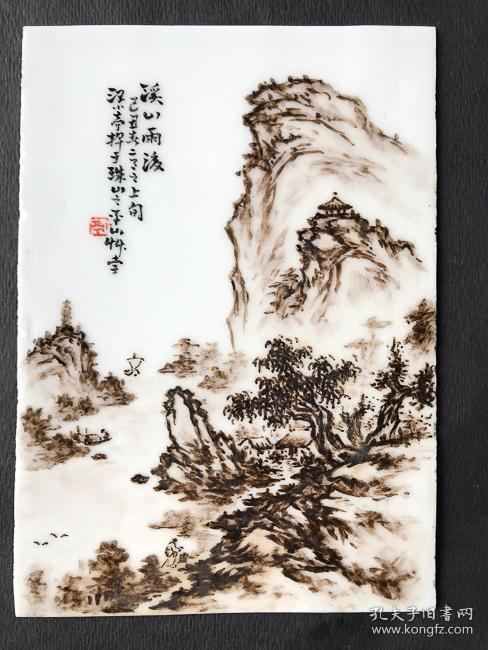 溪山雨后
己丑春二月之上旬
梁小亭挥于珠山之平山草堂
孔夫子旧书网
www.kongfz.com